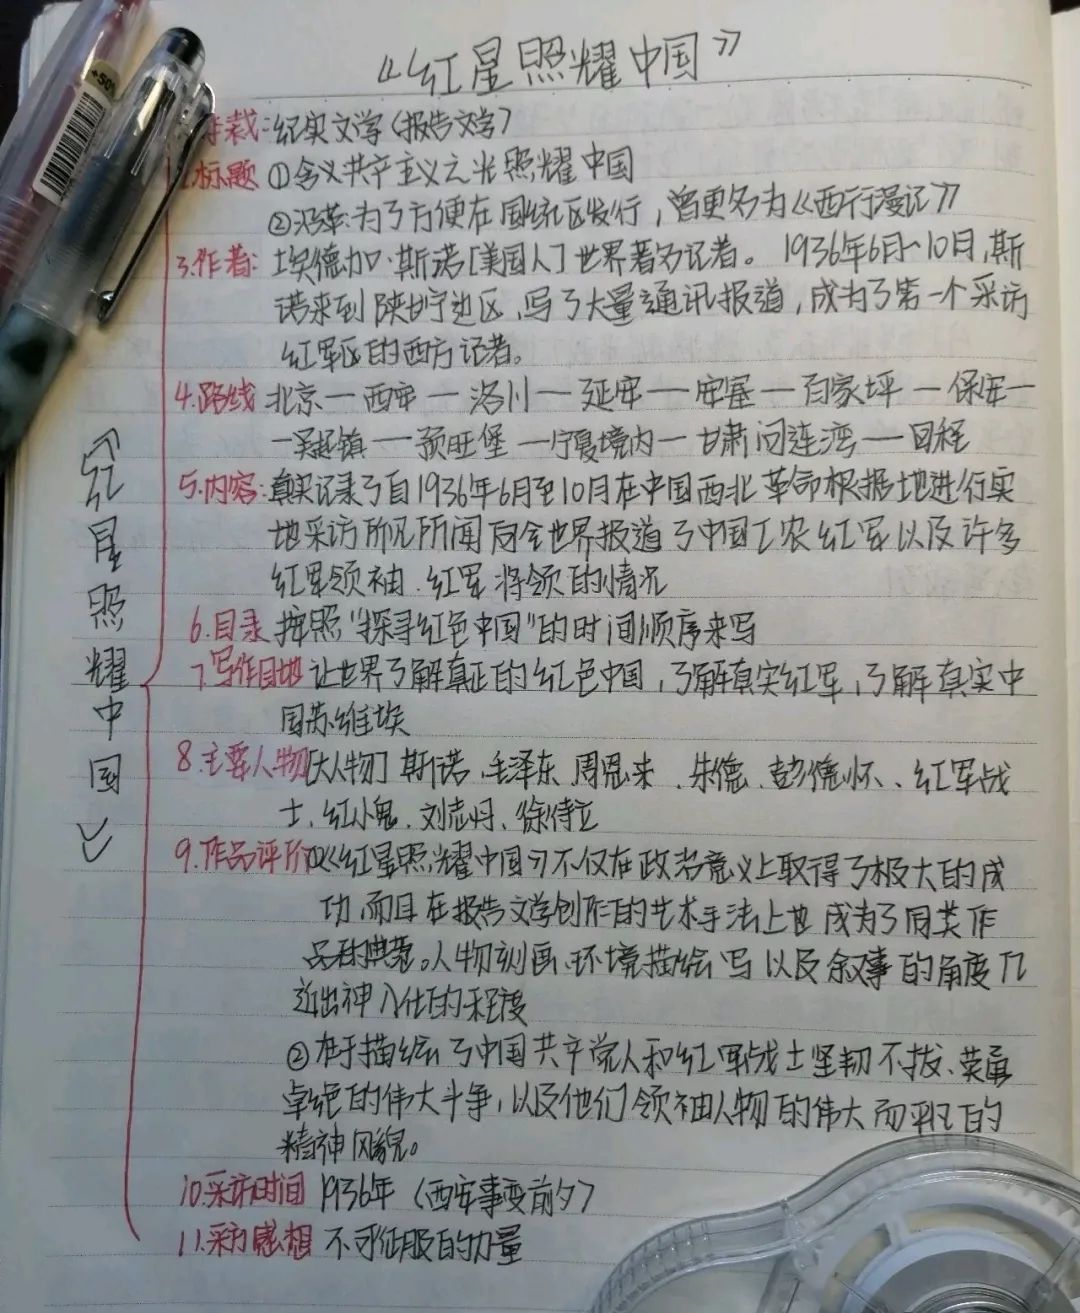 《红星照耀中国》
+50%
体裁：纪实文学（报告文学）
2.标题 ①含义共产主义之光照耀中国
②沿革：为了方便在国统区发行，曾更名为《西行漫记》
3.作者：埃德加·斯诺[美国人]世界著名记者。1936年6月~10月，斯
诺来到陕甘宁边区，写了大量通讯报道，成为了第一个采访
红军区的西方记者。
4.路线 北京一西安一洛川一延安一安塞一百家坪一保安一
一吴起镇一预旺堡一宁夏境内一甘肃问连湾一回程
5.内容：真实记录了自1936年6月至10月在中国西北革命根据地进行实
地采访所见所闻向全世界报道了中国工农红军以及许多
红军领袖.红军将领的情况
6.目录 按照“探寻红色中国”的时间顺序来写
7.写作目地 让世界了解真正的红色中国，了解真实红军，了解真实中
国苏维埃
8.主要人物[大人物]斯诺.毛泽东.周恩来.朱德.彭德怀、红军战
士.红小鬼.刘志丹、徐特立
9.作品评价①《红星照耀中国》不仅在政名意义上取得了极大的成
功，而且在报告文学创作的艺术手法上也成为了同类作
品种典范。人物刻画.环境描绘写以及叙事的角度几
近出神入化的程度
②在于描绘了中国共产党人和红军战士坚韧不拔、英勇
卓绝的伟大斗争，以及他们领袖人物的伟大而平凡的
精神风貌。
10.采访时间 1936年（西安事变前夕）
11.采访感想 不可征服的力量
《红星照耀中国》